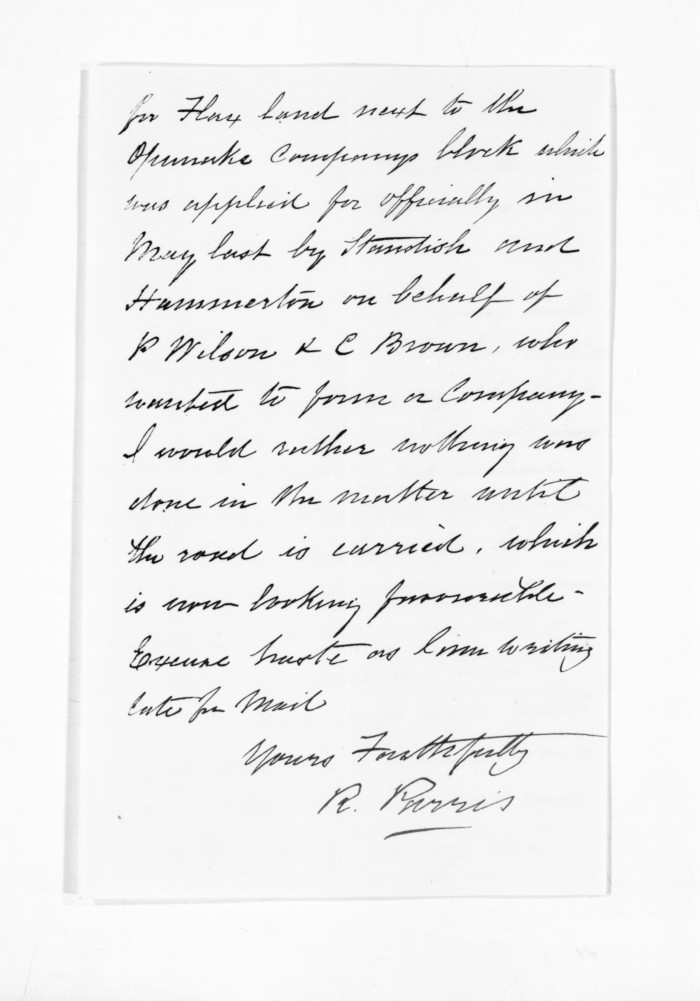 for Flax land next to the
Opunake Companys block which
was applied for officially in
May last by Standish and
Hammerton on behalf of
P Wilson & C Brown, who
wanted to form a Company-
I would rather nothing was
done in the matter until
the road is carried, which
is now looking favourable-
Excuse haste as I am writing
late for Mail
Yours Faithfully
R. Parris